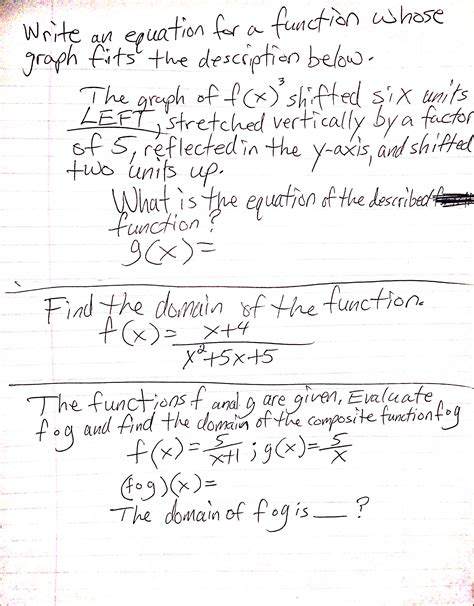 Write an equation for a function whose
graph fits the description below.
The graph of f(x)³ shifted six units
LEFT, stretched vertically by a factor
of 5, reflected in the y-axis, and shifted
two units up.
What is the equation of the described
function?
g(x)=
Find the domain of the function.
f(x)= x+4
x²+5x+5
The functions f and g are given, Evaluate
fog and find the domain of the composite function fog
f(x)= 5/x+1 ; g(x)= 5/x
(fog)(x)=
The domain of fog is ___ ?